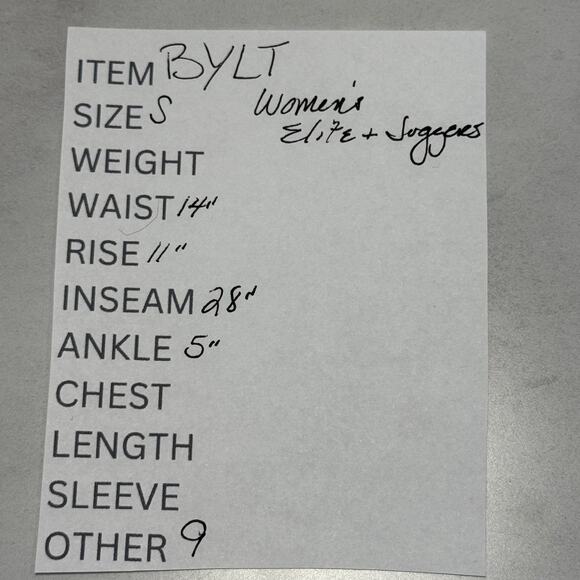 ITEM BYLT
SIZE S Women's
Elite + Joggers
WEIGHT
WAIST 14"
RISE 11"
INSEAM 28"
ANKLE 5"
CHEST
LENGTH
SLEEVE
OTHER 9